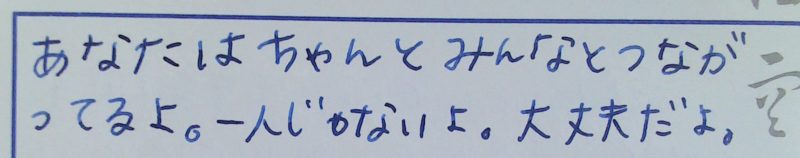 あなたはちゃんとみんなとつながが
ってるよ。一人じゃないよ。大丈夫だよ。